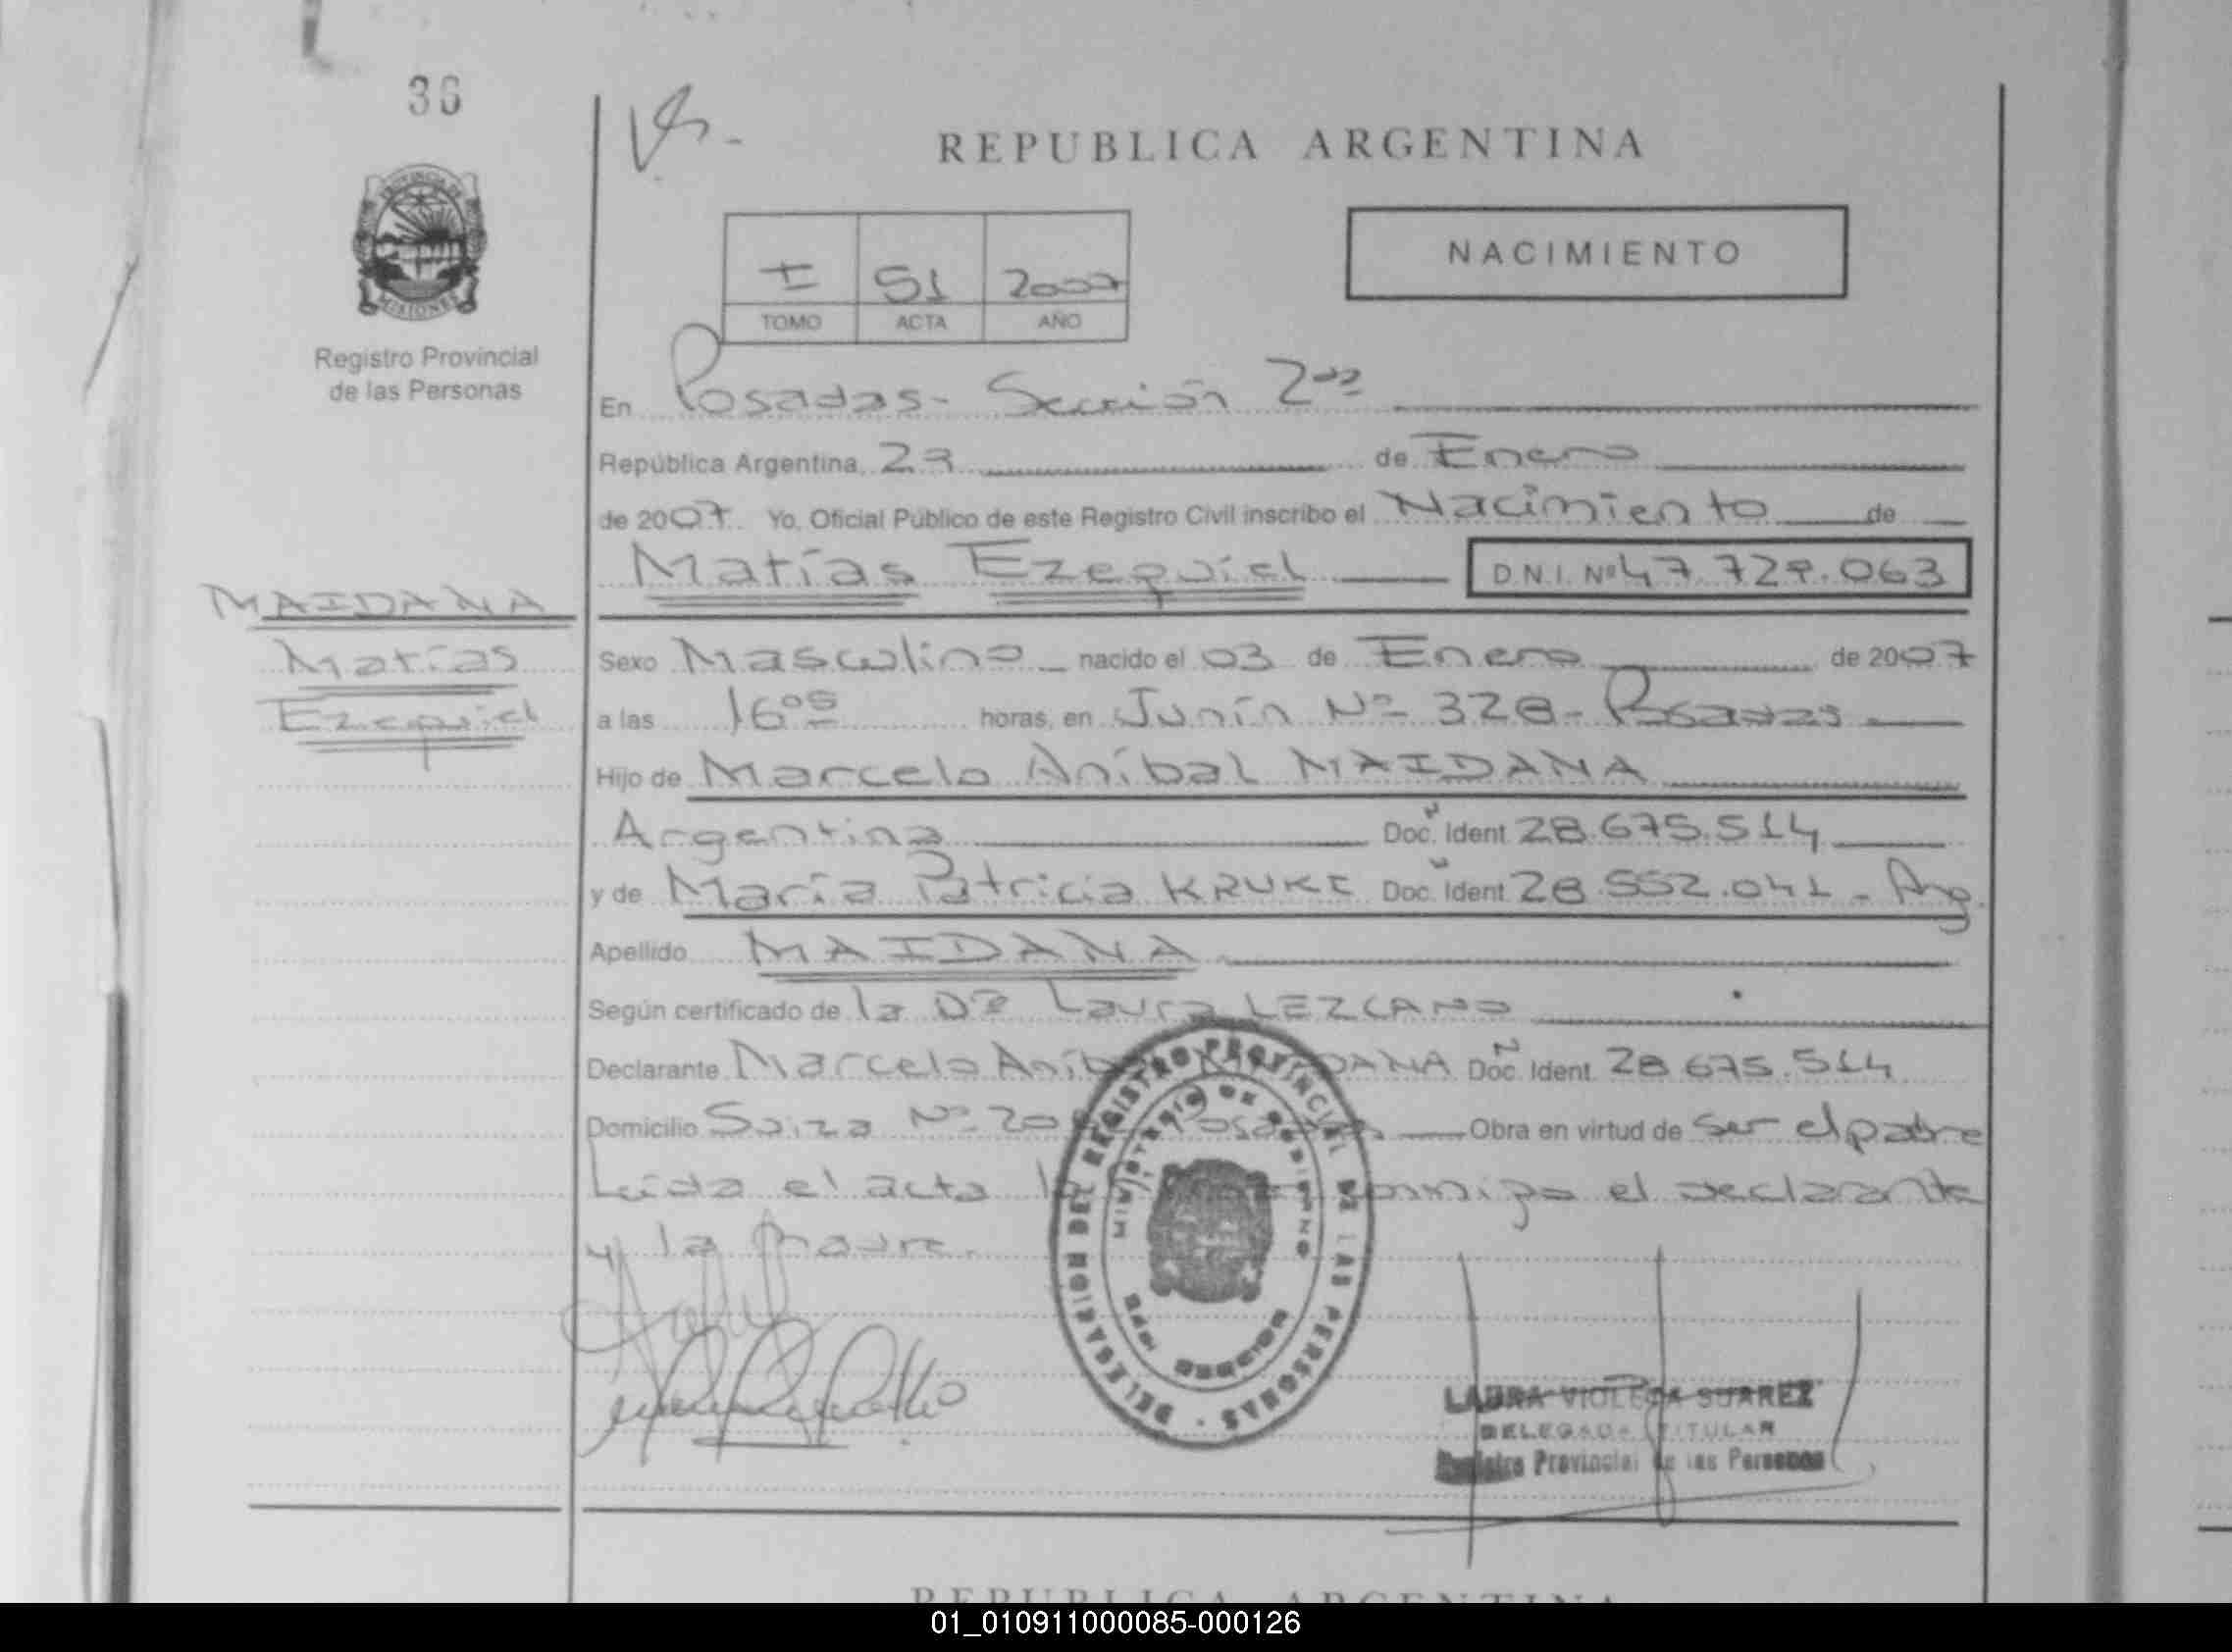 36
REPUBLICA ARGENTINA
PROVINCIA DE
MISIONES
Registro Provincial
de las Personas
NACIMIENTO
I 51 2007
TOMO ACTA AÑO
En Posadas- Sección 2da
República Argentina, 29 de Enero
de 2007. Yo, Oficial Público de este Registro Civil inscribo el Nacimiento de
Matías Ezequiel D.N.I. Nº 47.729.063
MAIDANA
Matías
Ezequiel
Sexo Masculino nacido el 03 de Enero de 2007
a las 16 05 horas, en Junín Nº 328- Posadas
Hijo de Marcelo Aníbal MAIDANA
Argentina Doc. Ident 28.675.514
y de María Patricia Doc. Ident 28.552.041 - Arg.
Apellido MAIDANA
Según certificado de la Dra Laura LEZCANO
Declarante Marcelo Aníbal MAIDANA Doc. Ident. 28.675.514
Domicilio Suiza Nº Posadas Obra en virtud de ser el padre
Leída el acta conmigo el declarante
y la madre.
DELEGACION DEL REGISTRO PROVINCIAL DE LAS PERSONAS
MINISTERIO DE GOBIERNO
MISIONES
LAURA VIOLETA SUAREZ
DELEGADA TITULAR
Registro Provincial de las Personas
REPUBLICA ARGENTINA
01_010911000085-000126